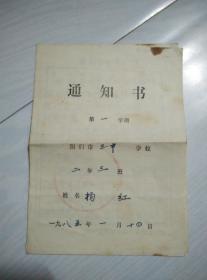 通知书
第一学期
图们市三中学校
二年三班
姓名 杨红
一九八五年一月十四日